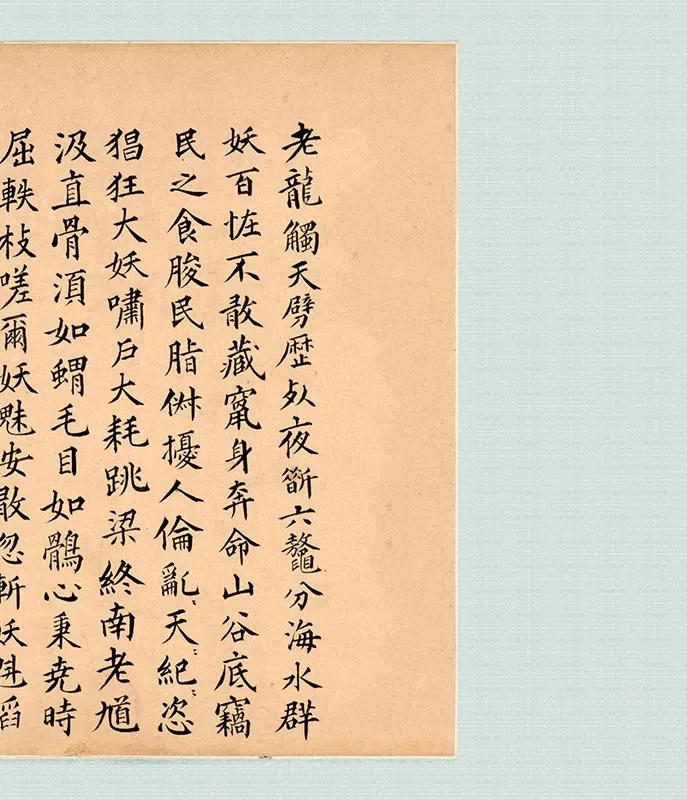 老龍觸天劈歷夜斷六鼇分海水群
妖百恠不敢藏竄身奔命山谷底竊
民之食朘民脂俶擾人倫亂天紀恣
猖狂大妖嘯戶大耗跳梁終南老馗
汲直骨湏如蝟毛目如鶻心秉堯時
屈軼枝嗟爾妖魅安敢忽斬妖